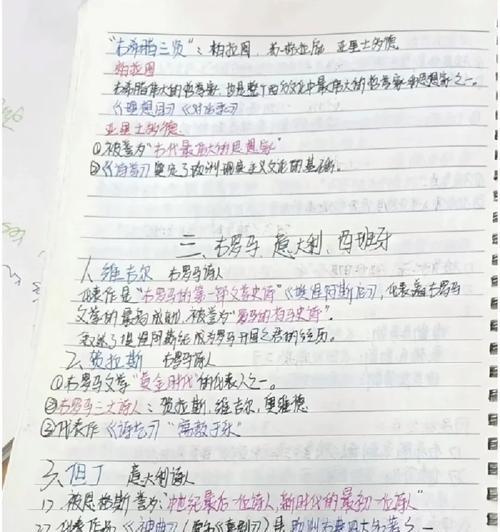 "古希腊三贤"：柏拉图、苏格拉底、亚里士多德
柏拉图
古希腊伟大的哲学家，也是整个西方文化中最伟大的哲学家和思想家之一。
《理想国》《对话录》
亚里士多德
①被誉为"古代最伟大的思想家"
②《诗学》奠定了欧洲现实主义文论的基础。
三、古罗马、意大利、西班牙
1、维吉尔 古罗马诗人
代表作是"古罗马的第一部文学史诗"《埃涅阿斯纪》，代表着古罗马
文学的最高成就，被誉为"罗马的荷马史诗"。
叙述了埃涅阿斯成为罗马开国之君的经历。
2、贺拉斯 古罗马诗人
①古罗马文学"黄金时代"的代表人之一。
②古罗马三大诗人：贺拉斯，维吉尔，奥维德
③代表作《诗艺》"寓教于乐"
3、但丁 意大利诗人
1）被恩格斯誉为："中世纪最后一位诗人，新时代的最初一位诗人"
2）代表作品《神曲》